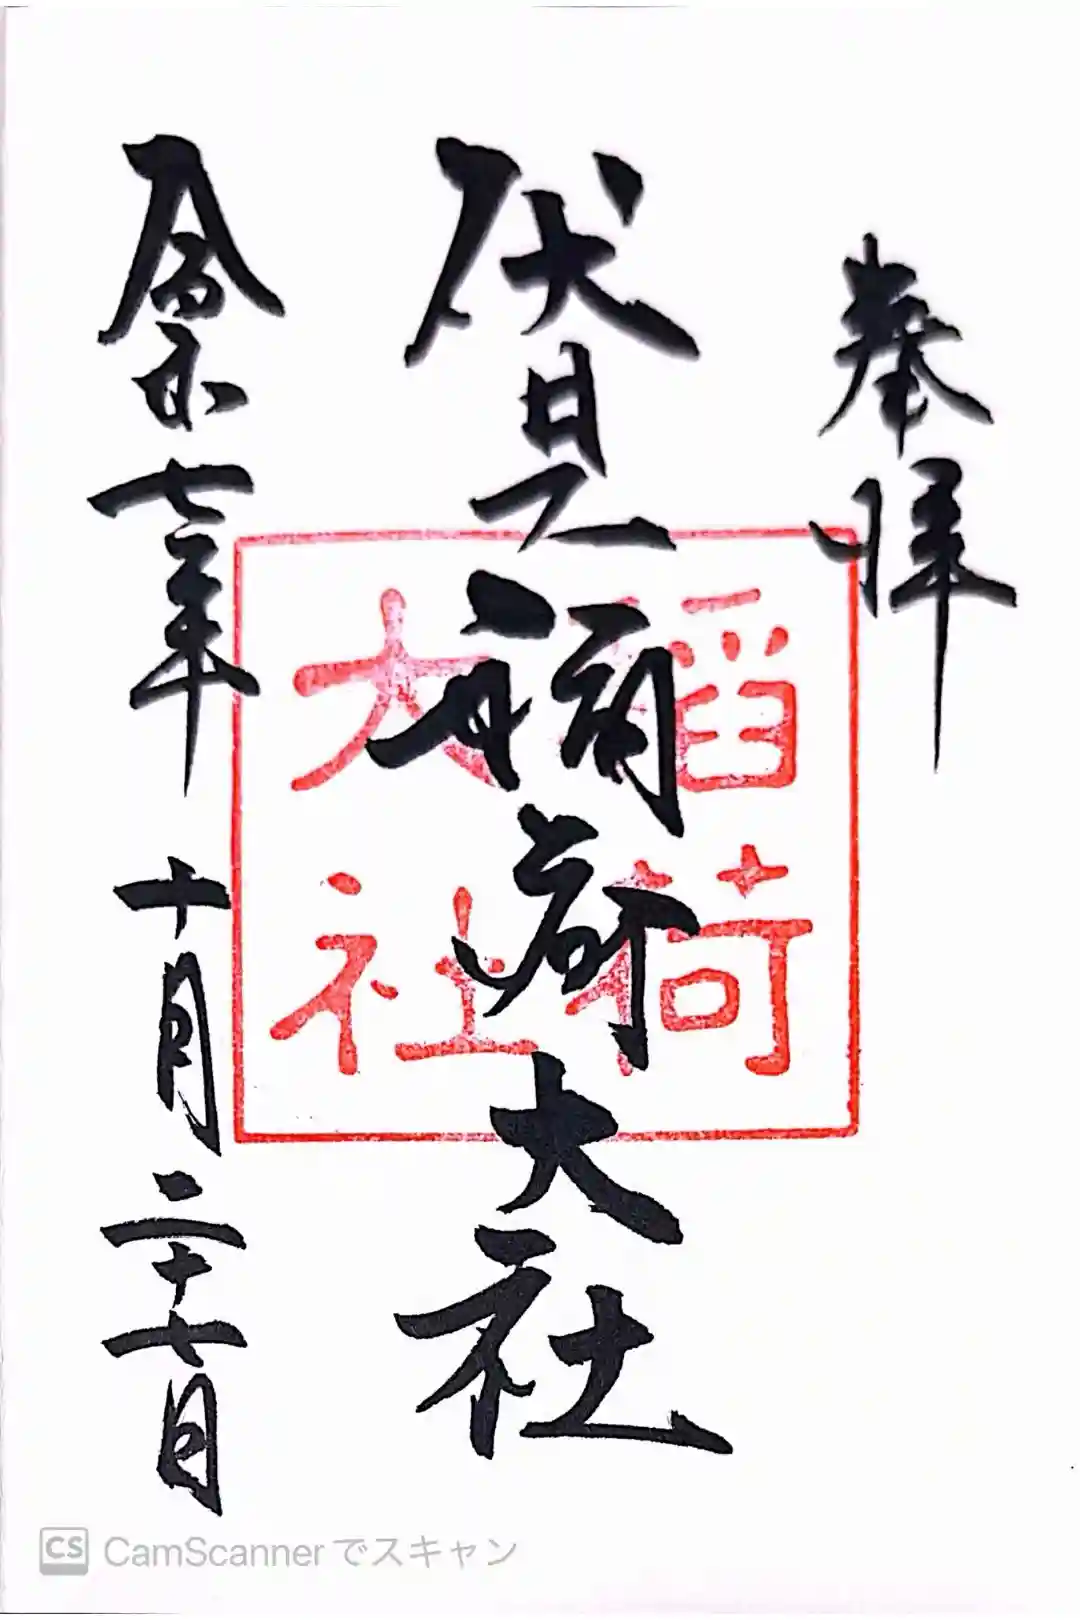 奉拝
伏見稲荷大社
稲荷
大社
令和七年 十月二十七日
CS CamScannerでスキャン